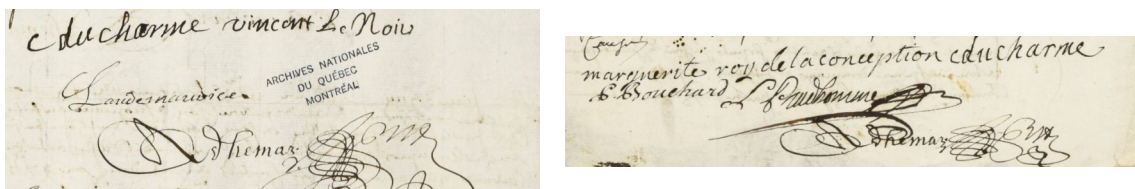 c ducharme vincent Le Noir
ARCHIVES NATIONALES
DU QUÉBEC
MONTRÉAL
Adhemar
marguerite roy de la conception c ducharme
P. Bouchard L Prudhomme
Adhemar